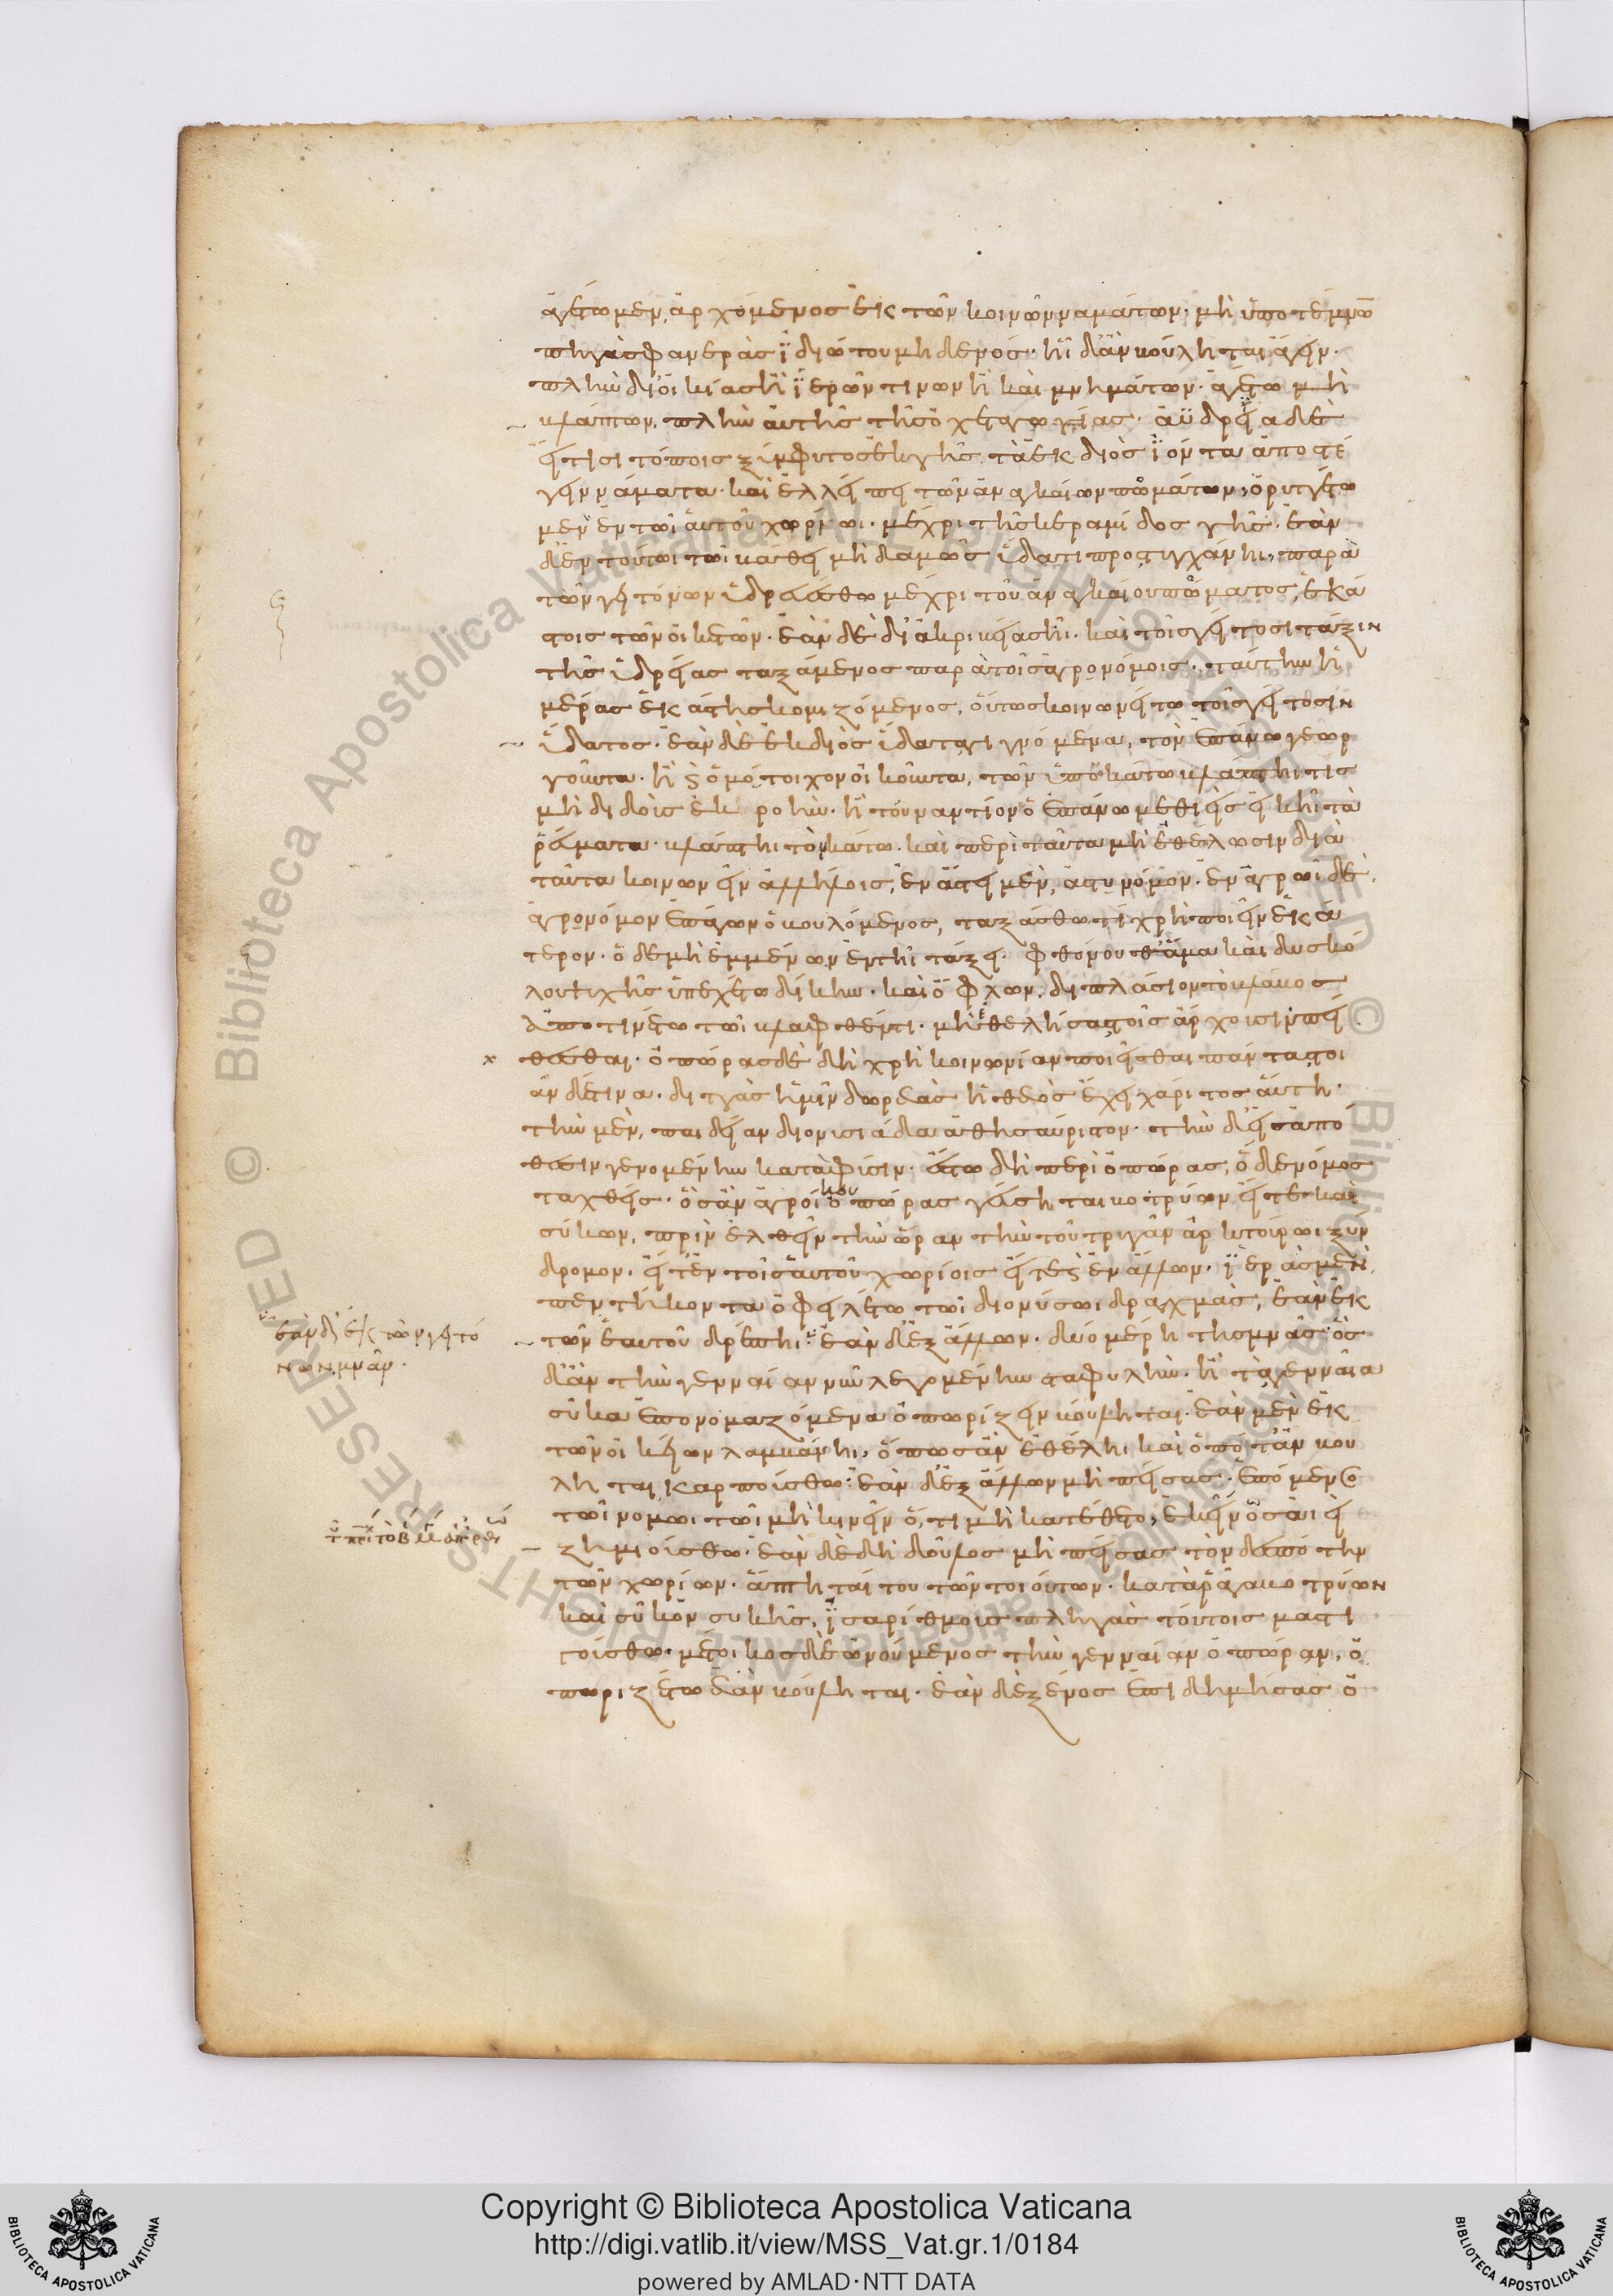 ἀγέτω μὲν ἀρχόμενος ἐκ τῶν κοινῶν ναμάτων· μὴ ὑποτέμνω̅
πηγὰς φανερὰς ἰδιώτου μηδενός· ἧι δ' ἂν βούληται ἄγειν·
πλὴν δι' οἰκίας ἢ ἱερῶν τινων ἢ καὶ μνημάτων· ἀγέτω μὴ
βλάπτων, πλὴν αὐτῆς τῆς ὀχεταγωγίας· ἀϋδρεία δὲ
εἴ τισι τόποις ξύμφυτος ἐκ γῆς τὰ ἐκ διὸς ἰόντα ἀποστέ
γειν νάματα· καὶ ἐλλείπει τῶν ἀναγκαίων πωμάτων, ὀρυττέτω
μὲν ἐν τῶι αὑτοῦ χωρίωι· μέχρι τῆς κεραμίδος γῆς· ἐὰν
δ' ἐν τούτωι τῶι βάθει μηδαμῶς ὕδατι προστυγχάνηι, παρὰ
τῶν γειτόνων ὑδρευέσθω μέχρι τοῦ ἀναγκαίου πώματος, ἑκά
στοις τῶν οἰκετῶν· ἐὰν δὲ δι' ἀκριβείας ἦι· καὶ τοῖς γείτοσι τάξιν
τῆς ὑδρείας ταξάμενος παρὰ τοῖς ἀγρονόμοις· ταύτην ἡ
μέρας ἑκάστης κομιζόμενος, οὕτως κοινωνείτω τοῖς γείτοσιν
ὕδατος· ἐὰν δὲ ἐκ διὸς ὕδατα γιγνόμενα, τὸν ἐπάνω γεωρ
γοῦντα· ἢ καὶ ὁμότοιχον οἰκοῦντα, τῶν ὑποκάτω βλάπτηι τις
μὴ διδοὺς ἐκροήν· ἢ τοὐναντίον ὁ ἐπάνω μεθιεὶς εἰκῆι τὰ
ῥεύματα· βλάπτηι τὸν κάτω· καὶ περὶ ταῦτα μὴ ἐθέλωσιν διὰ
ταῦτα κοινωνεῖν ἀλλήλοις, ἐν ἄστει μὲν, ἀστυνόμον· ἐν ἀγρῶι δὲ,
ἀγρονόμον ἐπάγων ὁ βουλόμενος, ταξάσθω τί χρὴ ποιεῖν ἑκά
τερον· ὁ δὲ μὴ ἐμμένων ἐν τῆι τάξει· φθόνου θ' ἅμα καὶ δυσκό
λου ψυχῆς ὑπεχέτω δίκην· καὶ ὀφλὼν, διπλάσιον τὸ βλάβος
ἀποτινέτω τῶι βλαφθέντι· μὴ ἐθελήσας τοῖς ἄρχουσιν πεί
θεσθαι· ὀπώρας δὲ δὴ χρὴ κοινωνίαν ποιεῖσθαι πάντας τοι
άνδε τινα· διττὰς ἡμῖν δωρεὰς ἡ θεὸς ἔχει χάριτος αὕτη·
τὴν μὲν, παιδείαν διονυσιάδα ἀθησαύριστον· τὴν δ' εἰς ἀπό
θεσιν γενομένην κατὰ φύσιν· ἔστω δὴ περὶ ὀπώρας, ὅδε νόμος
ταχθείς· ὃς ἂν ἀγροίκου ὀπώρας γεύσηται βοτρύων εἴτε καὶ
σύκων, πρὶν ἐλθεῖν τὴν ὥραν τὴν τοῦ τρυγᾶν ἀρκτούρωι ξύν
δρομον· εἴτ' ἐν τοῖς αὑτοῦ χωρίοις εἴτε καὶ ἐν ἄλλων· ἱερὰς μὲν,
πεντήκοντα ὀφειλέτω τῶι διονύσωι δραχμὰς, ἐὰν ἐκ
ἐὰν δ' ἐκ τῶν γειτό
νων, μνᾶν·
τῶν ἑαυτοῦ δρέπηι· ἐὰν δ' ἐξ ἄλλων· δύο μέρη τῆς μνᾶς· ὃς
δ' ἂν τὴν γενναίαν νῦν λεγομένην σταφυλὴν· ἢ τὰ γενναῖα
σῦκα ἐπονομαζόμενα ὀπωρίζειν βούληται· ἐὰν μὲν ἐκ
τῶν οἰκείων λαμβάνηι, ὅπως ἂν ἐθέληι καὶ ὁπόταν βού
ληται καρπούσθω· ἐὰν δ' ἐξ ἄλλων μὴ πείσας· ἑπομένως
τῶι νόμωι τῶι μὴ κινεῖν ὅ,τι μὴ κατέθετο, ἐκείνως ἀεὶ
ζημιούσθω· ἐὰν δὲ δὴ δοῦλος μὴ πείσας τὸν δεσπότην
τῶν χωρίων· ἅπτηταί του τῶν τοιούτων· κατὰ ῥᾶγα βοτρύων
καὶ σῦκον συκῆς, ἰσαρίθμους πληγὰς τούτοις μαστι
γούσθω· μέτοικος δὲ ὠνούμενος τὴν γενναίαν ὀπώραν, ὀ
πωριζέτω ἐὰν βούληται· ἐὰν δὲ ξένος ἐπιδημήσας ὀ
Copyright © Biblioteca Apostolica Vaticana
http://digi.vatlib.it/view/MSS_Vat.gr.1/0184
powered by AMLAD·NTT DATA
BIBLIOTECA APOSTOLICA VATICANA
BIBLIOTECA APOSTOLICA VATICANA
© Biblioteca Apostolica Vaticana ALL RIGHTS RESERVED
© Biblioteca Apostolica Vaticana ALL RIGHTS RESERVED